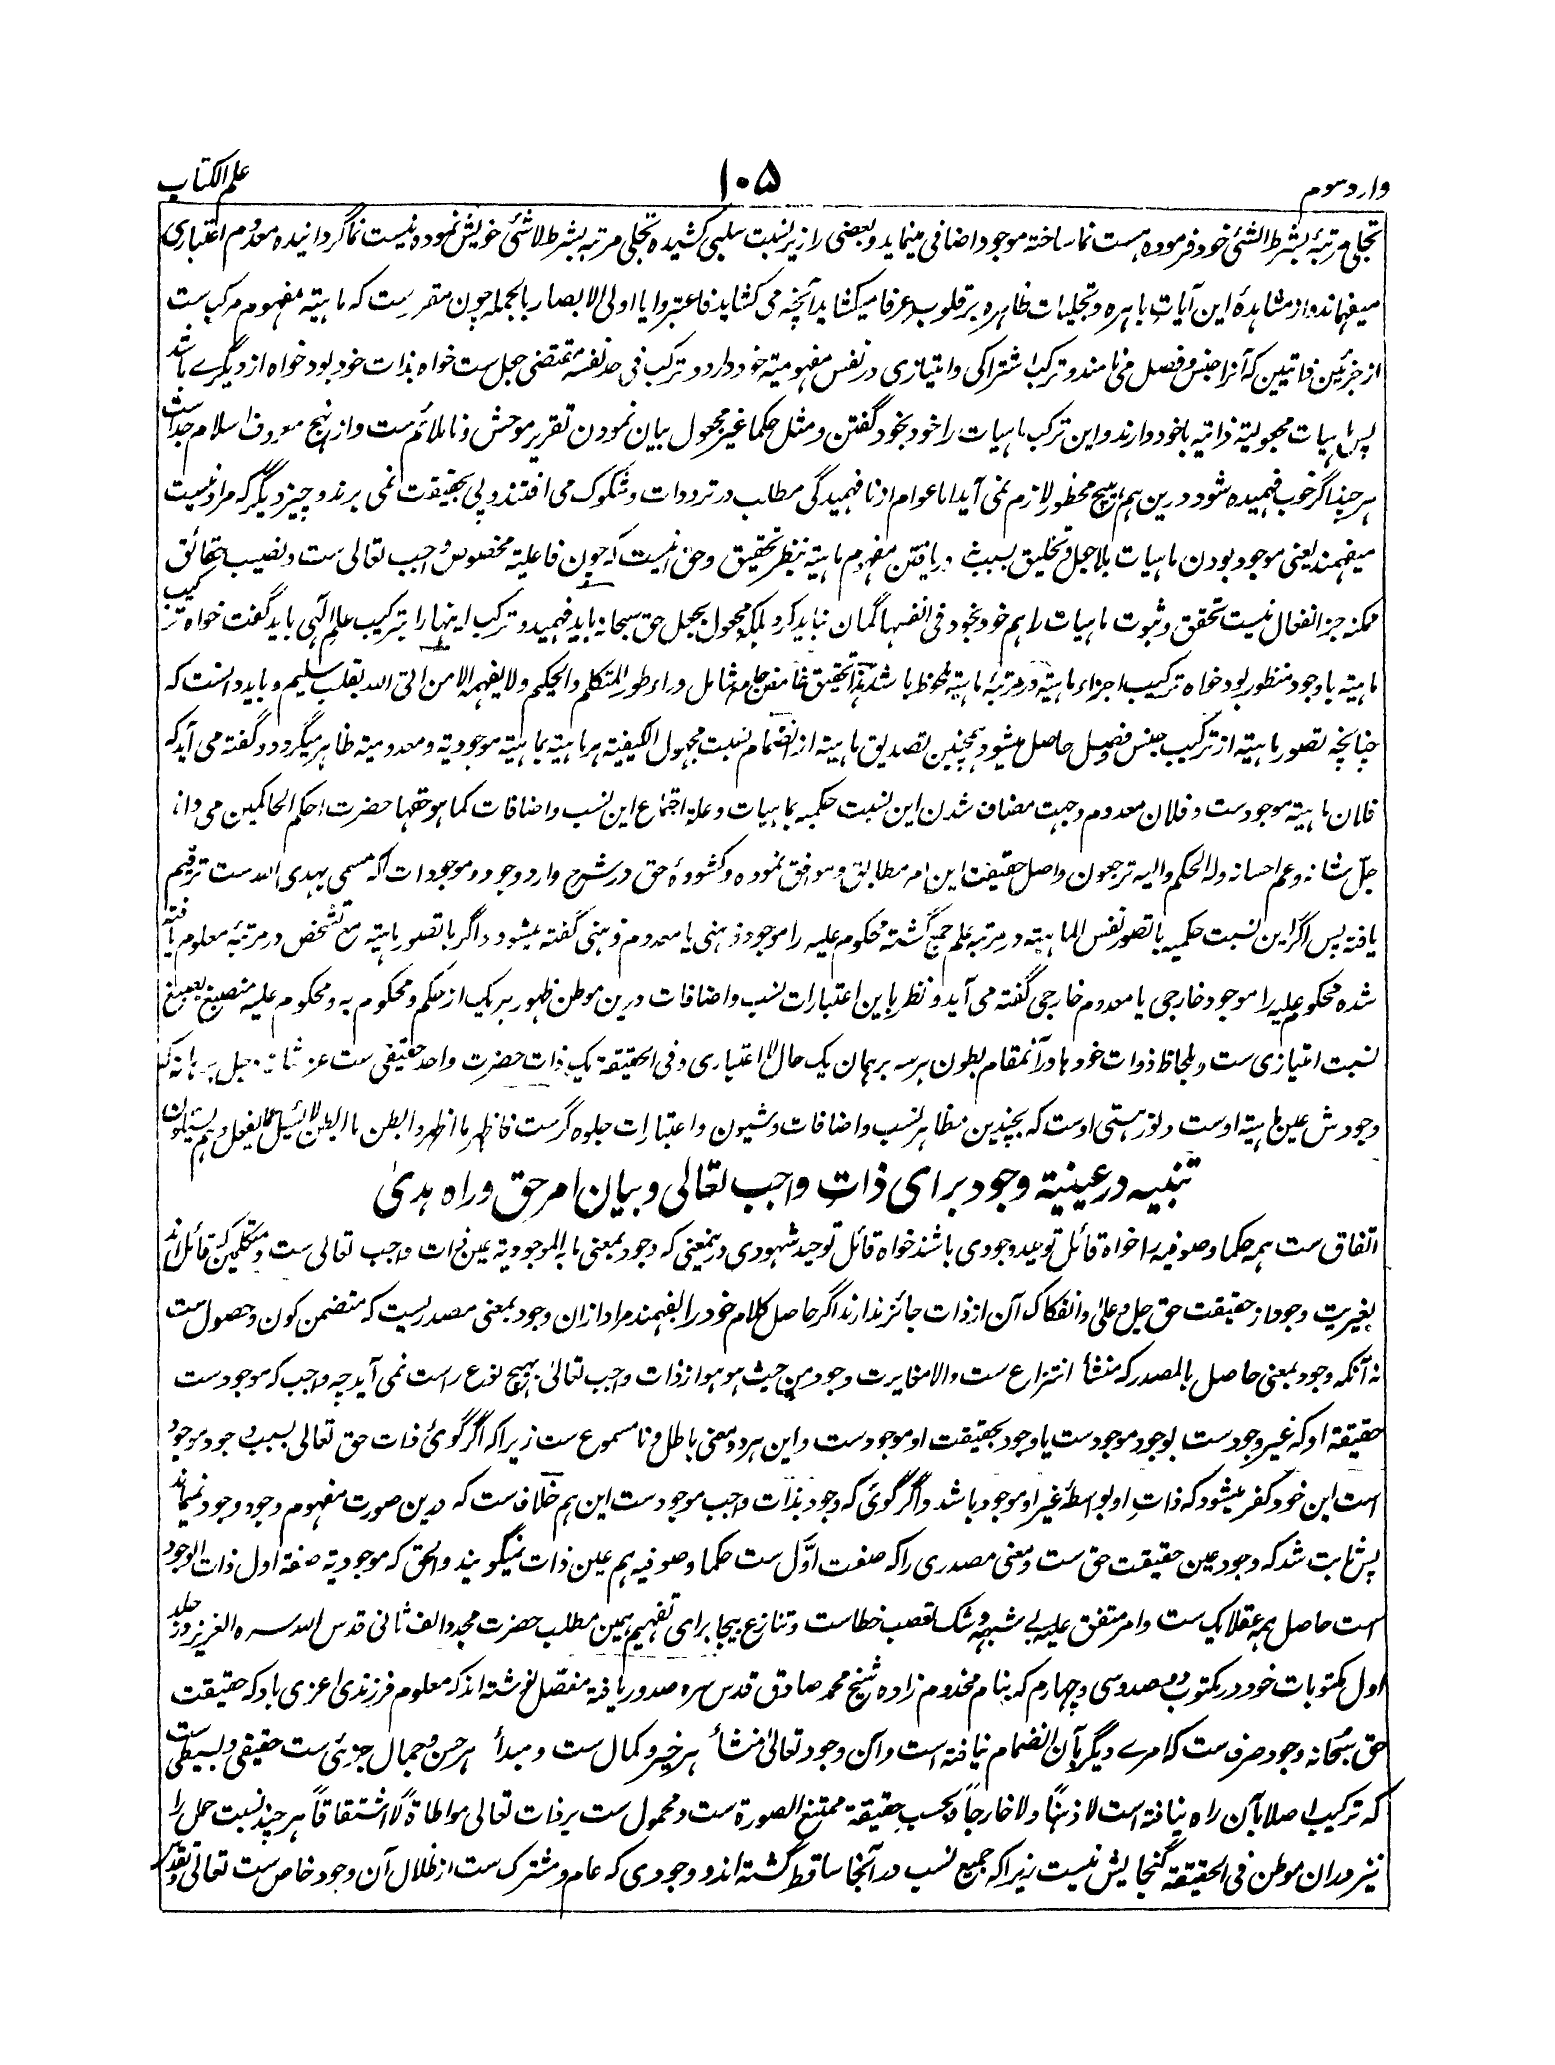 وارد سوم
۱۰۵
علم الکتاب
تجلی مرتبهٔ بشرط الشئ خود فرموده هست نما ساخته موجود اضافی مینماید و بعضی را زیر نسبت سلبی کشیده تجلی مرتبه بشرط لاشئ خویش نموده نیست نما گردانیده معدوم اعتباری
میفهماند و از مشاهدهٔ این آیات باهره و تجلیات ظاهره بر قلوب عرفا میکشاید آنچه می کشاید فاعتبروا یا اولی الابصار بالجمله چون مقرر ست که ماهیته مفهوم مرکب ست
از جزئین ذاتیین که آنرا جنس و فصل می نامند و ترکب اشتراکی و امتیازی در نفس مفهومیته خود دارد و ترکب فی حد نفسه مقتضی جعل ست خواه بذات خود بود خواه از دیگرے باشد
پس ماهیات مجعولیته ذاتیه باخود دارند و این ترکب ماهیات را خود بخود گفتن و مثل حکما غیر مجعول بیان نمودن تقریر موحش و ناملائم ست و از نهج معروف اسلام جداست
هر چند اگر خوب فهمیده شود درین هم هیچ محظور لازم نمی آید اما عوام از نافهمیدگی مطالب در ترددات و شکوک می افتند و پی بحقیقت نمی برند و چیز دیگر که مراد نیست
میفهمند یعنی موجود بودن ماهیات بلا جعل و تخلیق بسبب دریافتن مفهوم ماهیته بنظر تحقیق و حق اینست که چون فاعلیته مخصوص واجب تعالی ست و نصیب حقائق
ممکنه جز انفعال نیست تحقق و ثبوت ماهیات را هم خود بخود فی انفسها گمان نباید کرد بلکه مجعول بجعل حق سبحانه باید فهمید و ترکب اینها را بترکیب علم الٓهی باید گفت خواه ترکیب
ماهیته با وجود منظور بود خواه ترکیب اجزاء ماهیته در مرتبهٔ ماهیته ملحوظ باشد هذا تحقیق غامض جامع شامل وراء طور المتکلم والحکیم ولا یفهمه الا من اتی الله بقلب سلیم و باید دانست که
چنانچه تصور ماهیته از ترکیب جنس و فصل حاصل میشود همچنین تصدیق ماهیته از انضمام نسبت مجهول الکیفیته هر ماهیته بماهیته موجودیته و معدومیته ظاهر میگردد و گفته می آید که
فلان ماهیته موجود ست و فلان معدوم و جهت مضاف شدن این نسبت حکمیه بماهیات و علة اجتماع این نسب و اضافات کما هو حقها حضرت احکم الحاکمین می داند
جلّ شانه و عم احسانه وله الحکم والیه ترجعون و اصل حقیقت این امر مطابق و موافق نموده و کشودهٔ حق در شرح وارد وجود و موجودات که مسمی بهدی الله ست ترقیم
یافته پس اگر این نسبت حکمیه با تصور نفس الماهیته در مرتبه علم جمع گشته محکوم علیه را موجود ذهنی یا معدوم ذهنی گفته میشود و اگر با تصور ماهیته مع تشخص در مرتبهٔ معلوم یافته
شده محکوم علیه را موجود خارجی یا معدوم خارجی گفته می آید و نظر باین اعتبارات نسب و اضافات درین موطن ظهور هر یک از حکم و محکوم به و محکوم علیه منصبغ بصبغ
نسبت امتیازی ست و بلحاظ ذوات خود ها در آنمقام بطون هر سه برهمان یک حال لا اعتباری و فی الحقیقة یک ذات حضرت واحد حقیقی ست عز شانه و جل برهانه که
وجودش عین ماهیته اوست و نور هستی اوست که بچندین مظاهر نسب و اضافات و شیون و اعتبارات جلوه گرست فاظهر ما اظهر و ابطن ما ابطن لا یسئل عما یفعل و هم یسئلون
تنبیه در عینیته وجود برای ذات واجب تعالی و بیان امر حق و راه هدیٰ
اتفاق ست همه حکما و صوفیه را خواه قائل توحید وجودی باشند خواه قائل توحید شهودی درینمعنی که وجود بمعنی ما به الموجودیته عین ذات واجب تعالی ست و متکلمین که قائل اند
بغیریت وجود از حقیقت حق جل و علیٰ و انفکاک آن از ذات جائز ندارند اگر حاصل کلام خود را بفهمند مراد از ان وجود بمعنی مصدریست که متضمن کون و حصول ست
نه آنکه وجود بمعنی حاصل بالمصدر که منشأ انتزاع ست والا مغایرت وجود من حیث هو هو از ذات واجب تعالیٰ بهیچ نوع راست نمی آید چه واجب که موجود ست
حقیقة او که غیر وجود ست بوجود موجود ست یا وجود بحقیقت او موجود ست و این هر دو معنی باطل و نامسموع ست زیرا که اگر گوئ ذات حق تعالی بسبب وجود موجود
است این خود کفر میشود که ذات او بواسطهٔ غیر او موجود باشد و اگر گوئ که وجود بذات واجب موجود ست این هم خلاف ست که درین صورت مفهوم وجود وجود نمیماند
پس ثابت شد که وجود عین حقیقت حق ست و معنی مصدری را که صفت اوّل ست حکما و صوفیه هم عین ذات نمیگویند و الحق که موجودیة صفة اول ذات الوجود
است حاصل همه عقلا یک ست و امر متفق علیه بے شبهه و شک تعصب خطاست و تنازع بیجا برای تفهیم همین مطلب حضرت مجدد الف ثانی قدس الله سره العزیز در جلد
اول مکتوبات خود در مکتوب دو صد و سی و چهارم که بنام مخدوم زاده شیخ محمد صادق قدس سره صدور یافته مفصل نوشته اند که معلوم فرزندی اعزی باد که حقیقت
حق سبحانه وجود صرف ست که امرے دیگر بآن انضمام نیافته است و آن وجود تعالیٰ منشأ هر خیر و کمال ست و مبدأ هر حسن و جمال جزئ ست حقیقی و بسیطی ست
که ترکیب اصلا بآن راه نیافته است لا ذهنًا ولا خارجًا و بحسب حقیقة ممتنع التصور ست و محمول ست بر ذات تعالی مواطاةً لا اشتقاقًا هر چند نسبت حمل را
نیز در ان موطن فی الحقیقة گنجایش نیست زیرا که جمیع نسب در آنجا ساقط گشته اند و وجودی که عام و مشترک ست از ظلال آن وجود خاص ست تعالی و تقدس